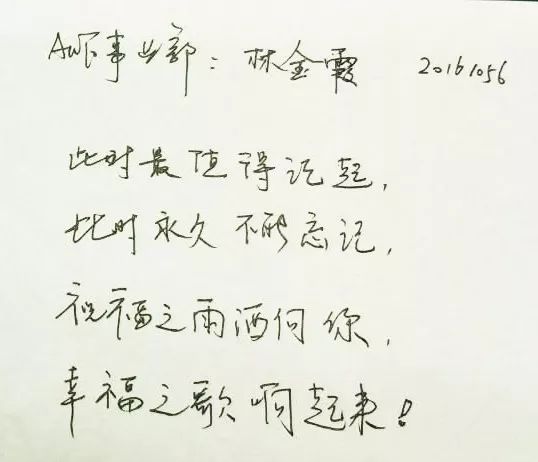 事业部：林金霞 20161056
此时最值得记起，
此时永久不能忘记，
祝福之雨洒向你，
幸福之歌啊起来！